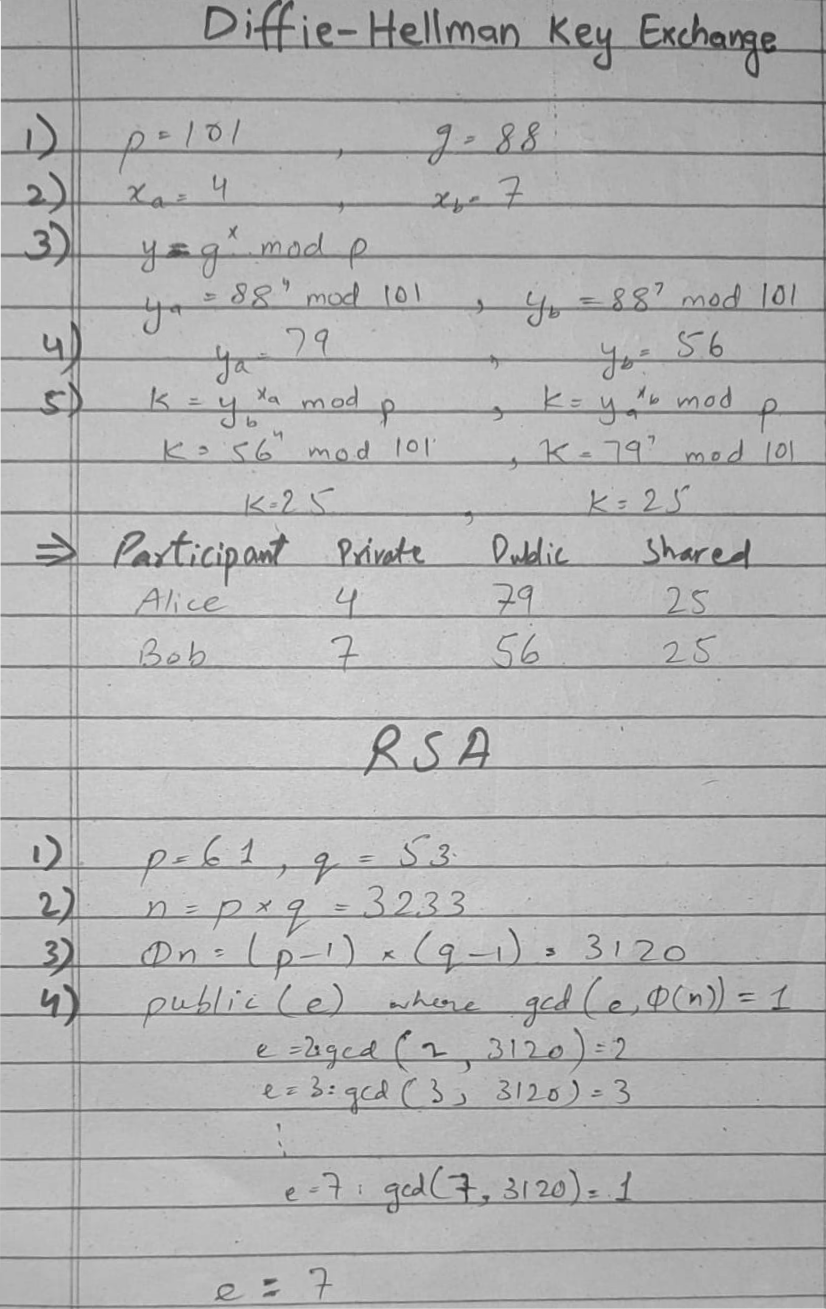 Diffie-Hellman Key Exchange
1) p = 101 , g = 88
2) xₐ = 4 , x_b = 7
3) y = gˣ mod p
yₐ = 88⁴ mod 101 , y_b = 88⁷ mod 101
4) yₐ = 79 , y_b = 56
5) K = y_b^xₐ mod p , K = yₐ^x_b mod p
K = 56⁴ mod 101 , K = 79⁷ mod 101
K = 25 , K = 25
⇒ Participant Private Public Shared
Alice 4 79 25
Bob 7 56 25
RSA
1) p = 61 , q = 53
2) n = p × q = 3233
3) Φn = (p-1) × (q-1) = 3120
4) public (e) where gcd (e, Φ(n)) = 1
e = 2: gcd (2, 3120) = 2
e = 3: gcd (3, 3120) = 3
⋮
e = 7: gcd(7, 3120) = 1
e = 7